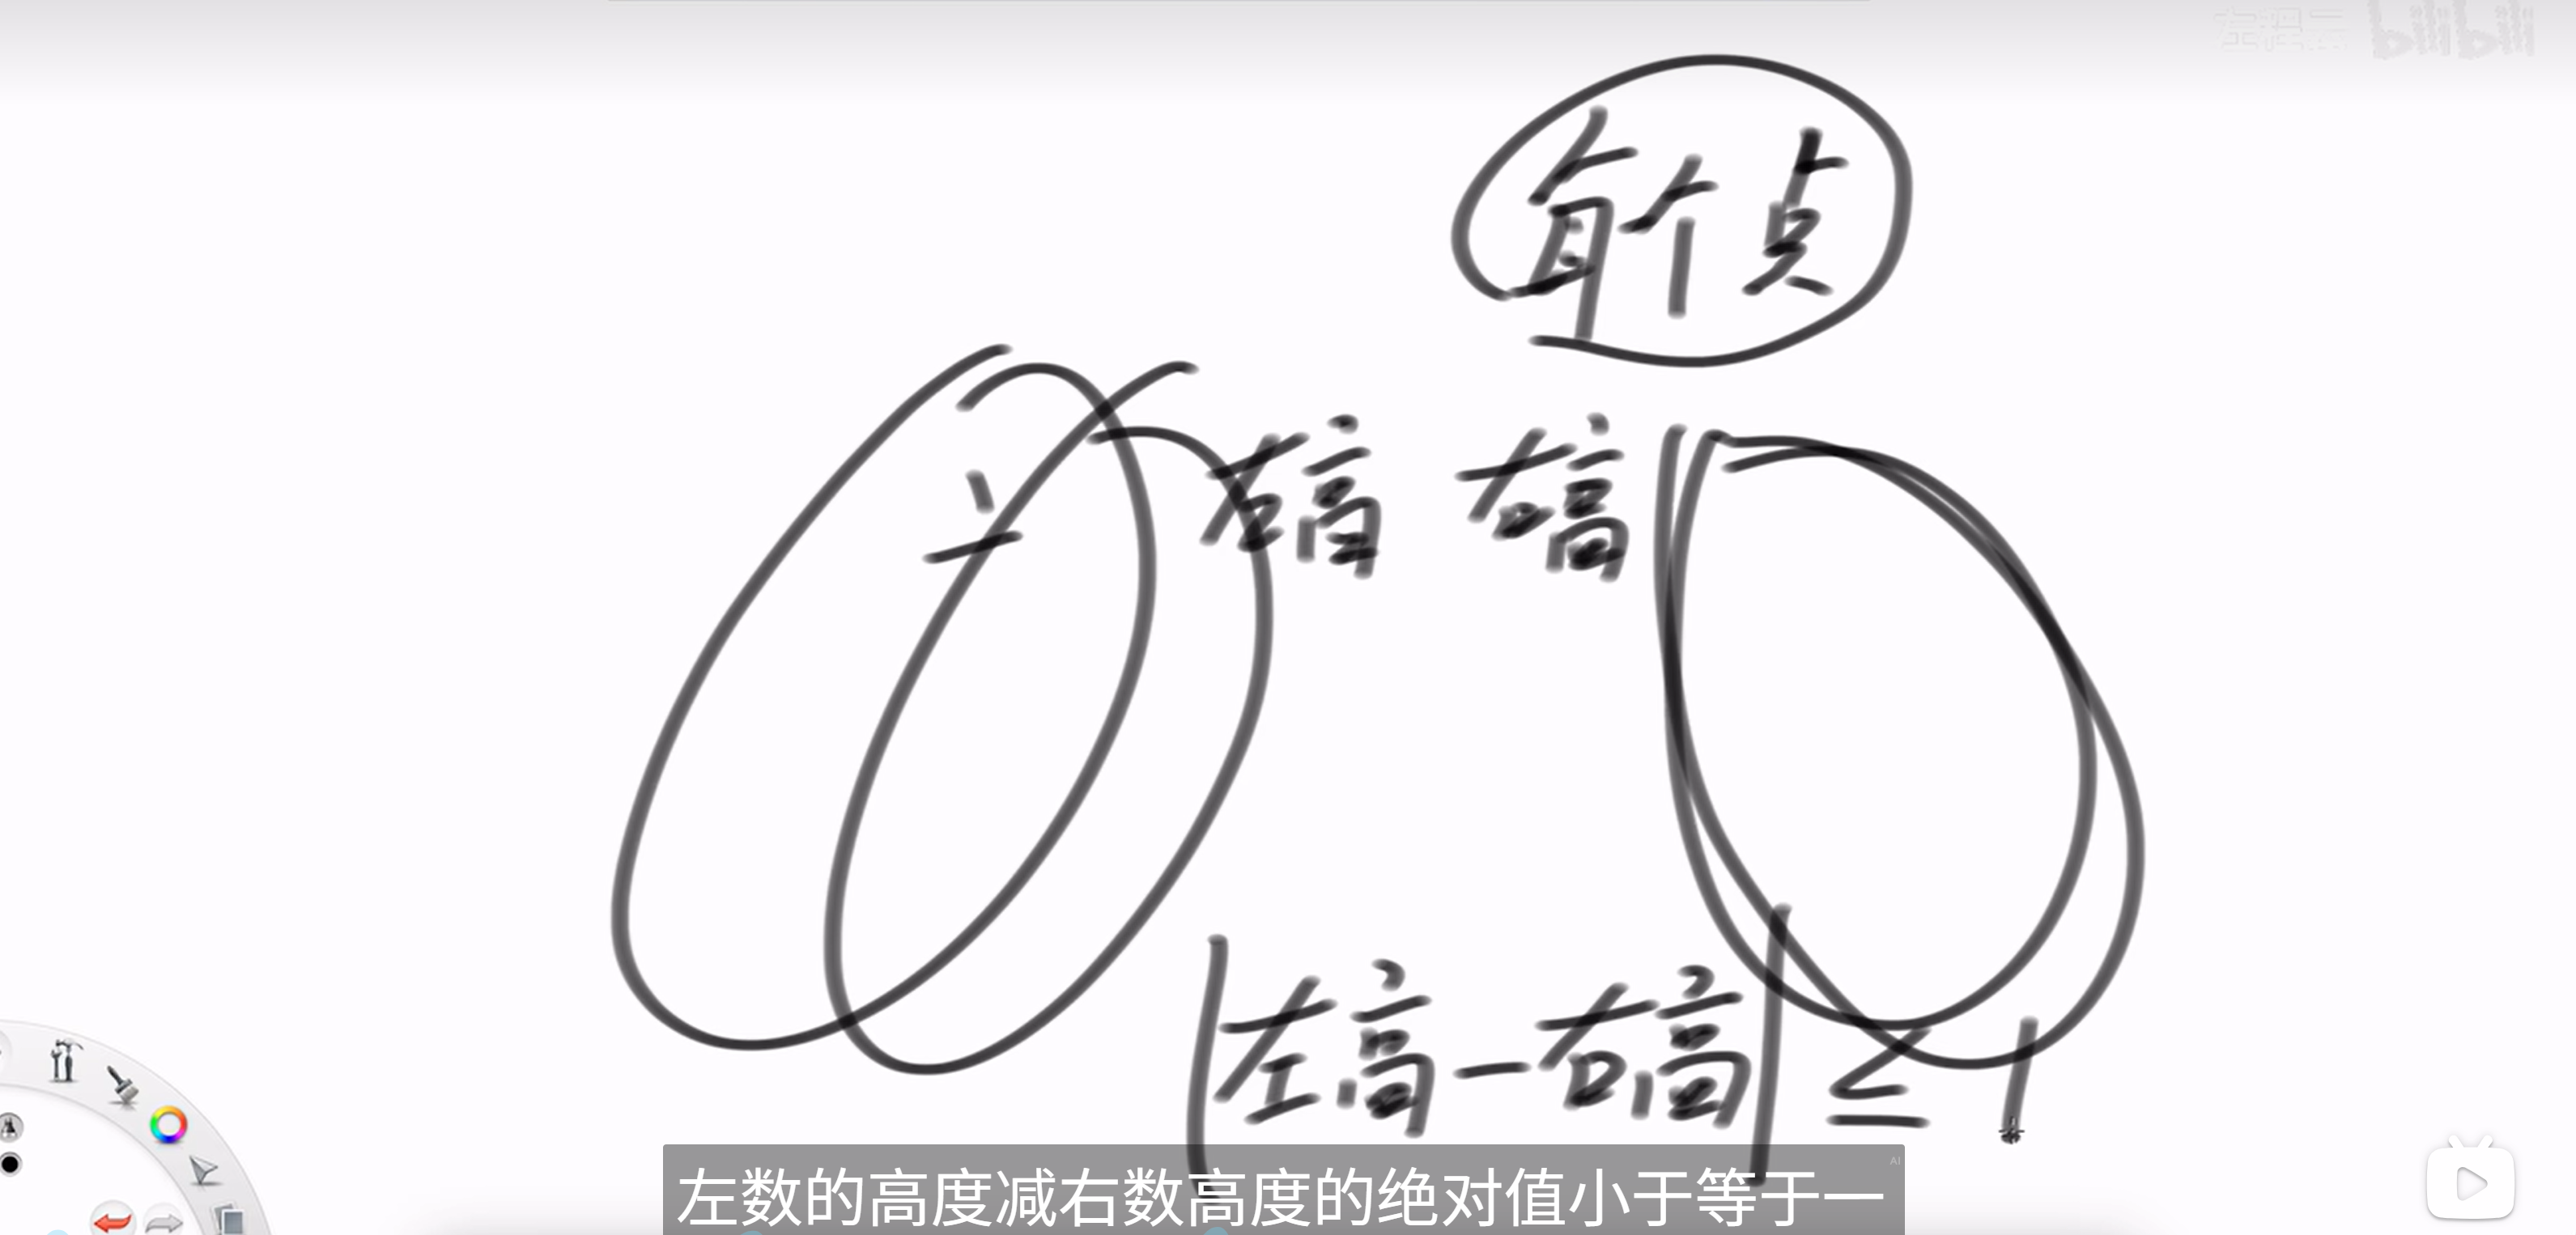 bilibili
每个点
左高 右高
|左高-右高| ≤ 1
左数的高度减右数高度的绝对值小于等于一
AI